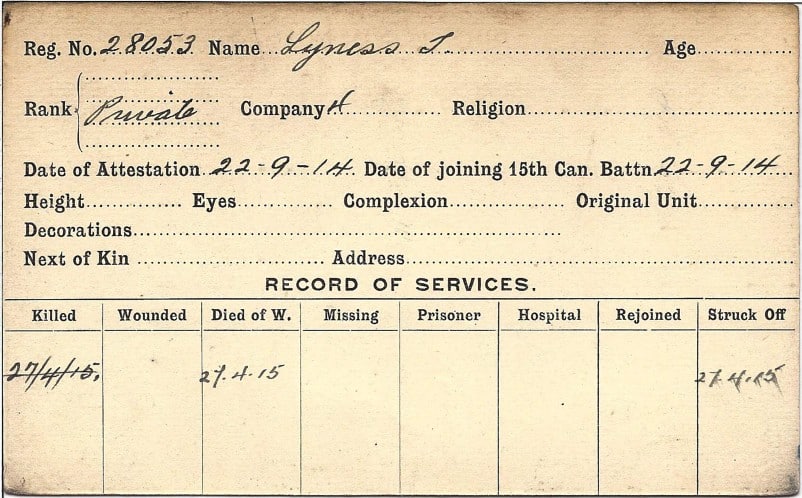 Reg. No. 28053 Name Lyness T. Age
Rank Private Company 4 Religion
Date of Attestation 22-9-14 Date of joining 15th Can. Battn 22-9-14
Height Eyes Complexion Original Unit
Decorations
Next of Kin Address
RECORD OF SERVICES.
Killed Wounded Died of W. Missing Prisoner Hospital Rejoined Struck Off
27/4/15. 27.4.15 27.4.15